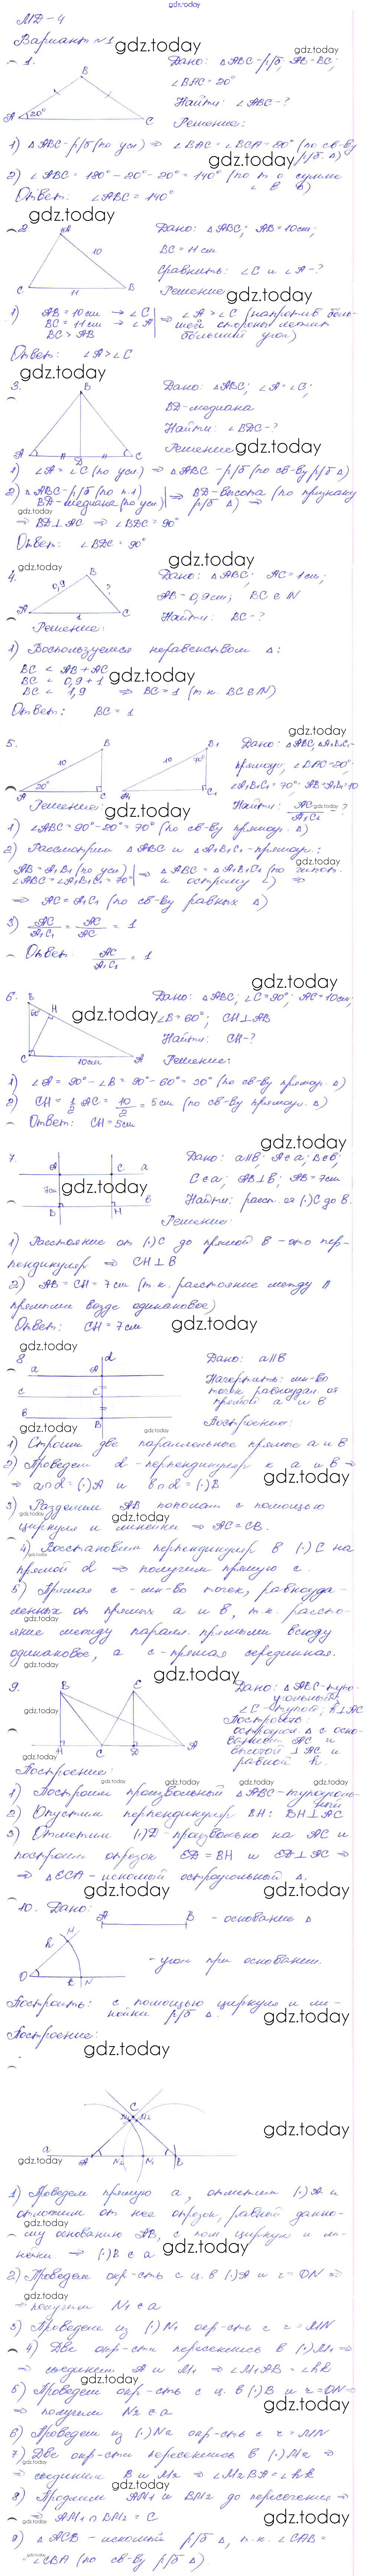 МД-4
Вариант №1
1.
Дано: △ABC-р/б, AB=BC;
∠BAC=20°
Найти: ∠ABC-?
Решение:
1) △ABC-р/б (по усл) ⇒ ∠BAC=∠BCA=20° (по св-ву р/б △)
2) ∠ABC = 180°-20°-20° = 140° (по т о сумме ∠ в △)
Ответ: ∠ABC=140°
2.
Дано: △ABC; AB=10см;
BC=11см
Сравнить: ∠C и ∠A-?
Решение:
1) AB=10см → ∠C
BC=11см → ∠A
BC > AB
⇒ ∠A > ∠C (напротив большей стороны лежит больший угол)
Ответ: ∠A>∠C
3.
Дано: △ABC; ∠A=∠C;
BD-медиана
Найти: ∠BDC-?
Решение:
1) ∠A=∠C (по усл) ⇒ △ABC-р/б (по св-ву р/б △)
2) △ABC-р/б (по п.1)
BD-медиана (по усл)
⇒ BD-высота (по признаку р/б △) ⇒
⇒ BD⊥AC ⇒ ∠BDC=90°
Ответ: ∠BDC=90°
4.
Дано: △ABC; AC=1см;
AB=0,9см; BC∈N
Найти: BC-?
Решение:
1) Воспользуемся неравенством △:
BC < AB+AC
BC < 0,9+1
BC < 1,9 ⇒ BC=1 (т.к. BC∈N)
Ответ: BC=1
5.
Дано: △ABC, △A1B1C1-
прямоуг, ∠BAC=20°,
∠A1B1C1=70° AB=A1B1=10
Найти: AC/A1C1 ?
Решение:
1) ∠ABC=90°-20°=70° (по св-ву прямоуг. △)
2) Рассмотрим △ABC и △A1B1C1-прямоуг.:
AB=A1B1 (по усл)
∠ABC=∠A1B1C1=70°
⇒ △ABC=△A1B1C1 (по гипот. и острому ∠) ⇒
⇒ AC=A1C1 (по св-ву равных △)
3) AC/A1C1 = AC/AC = 1
Ответ: AC/A1C1 = 1
6.
Дано: △ABC; ∠C=90°; AC=10см;
∠B=60°; CH⊥AB
Найти: CH-?
Решение:
1) ∠A=90°-∠B=90°-60°=30° (по св-ву прямоуг. △)
2) CH=1/2 AC=10/2=5см (по св-ву прямоуг. △)
Ответ: CH=5см
7.
Дано: a∥b; A∈a; B∈b;
C∈a; AB⊥b; AB=7см
Найти: расст. от (·)C до b.
Решение:
1) Расстояние от (·)C до прямой b - это пер-
пендикуляр ⇒ CH⊥b
2) AB=CH=7см (т.к. расстояние между ∥
прямыми везде одинаковое)
Ответ: CH=7см
8
Дано: a∥b
Начертить: мн-во
точек равноудал от
прямой a и b
Построение:
1) Строим две параллельные прямые a и b
2) Проведем d-перпендикуляр к a и b ⇒
⇒ a∩d=(·)A и b∩d=(·)B
3) Разделим AB пополам с помощью
циркуля и линейки ⇒ AC=CB.
4) Восстановим перпендикуляр в (·)C на
прямой d ⇒ получим прямую c.
5) Прямая c-мн-во точек, равноуда-
ленных от прямых a и b, т.к. рассто-
яние между паралл. прямыми всюду
одинаковое, а c-прямая серединная.
9.
Дано: △ABC-тупо-
угольный
∠C-тупой; h⊥AC
Построить:
остроугол. △ с осно-
ванием AC и
высотой ⊥AC и
равной h.
Построение:
1) Построим произвольный △ABC-тупоуголь-
ный
2) Опустим перпендикуляр BH: BH⊥AC
3) Отметим (·)D-произвольно на AC и
построим отрезок ED=BH и ED⊥AC ⇒
⇒ △ECA-искомый остроугольный △.
10. Дано:
- основание △
- угол при основании.
Построить: с помощью циркуля и ли-
нейки р/б △.
Построение:
1) Проведем прямую a, отметим (·)A и
отложим от нее отрезок, равный данно-
му основанию AB, с пом. циркуля и ли-
нейки ⇒ (·)B∈a
2) Проведем окр-сть с ц. в (·)A и r=ON ⇒
⇒ получим N1∈a
3) Проведем из (·)N1 окр-сть с r=MN
4) Две окр-сти пересеклись в (·)M1 ⇒
⇒ соединим A и M1 ⇒ ∠M1AB=∠hk
5) Проведем окр-сть с ц. в (·)B и r=ON ⇒
⇒ получим N2∈a
6) Проведем из (·)N2 окр-сть с r=MN
7) Две окр-сти пересеклись в (·)M2 ⇒
⇒ соединим B и M2 ⇒ ∠M2BA=∠hk
8) Продлим AM1 и BM2 до пересечения ⇒
⇒ AM1∩BM2=C
9) △ACB-искомый р/б △, т.к. ∠CAB=
=∠CBA (по св-ву р/б △)
gdz.today